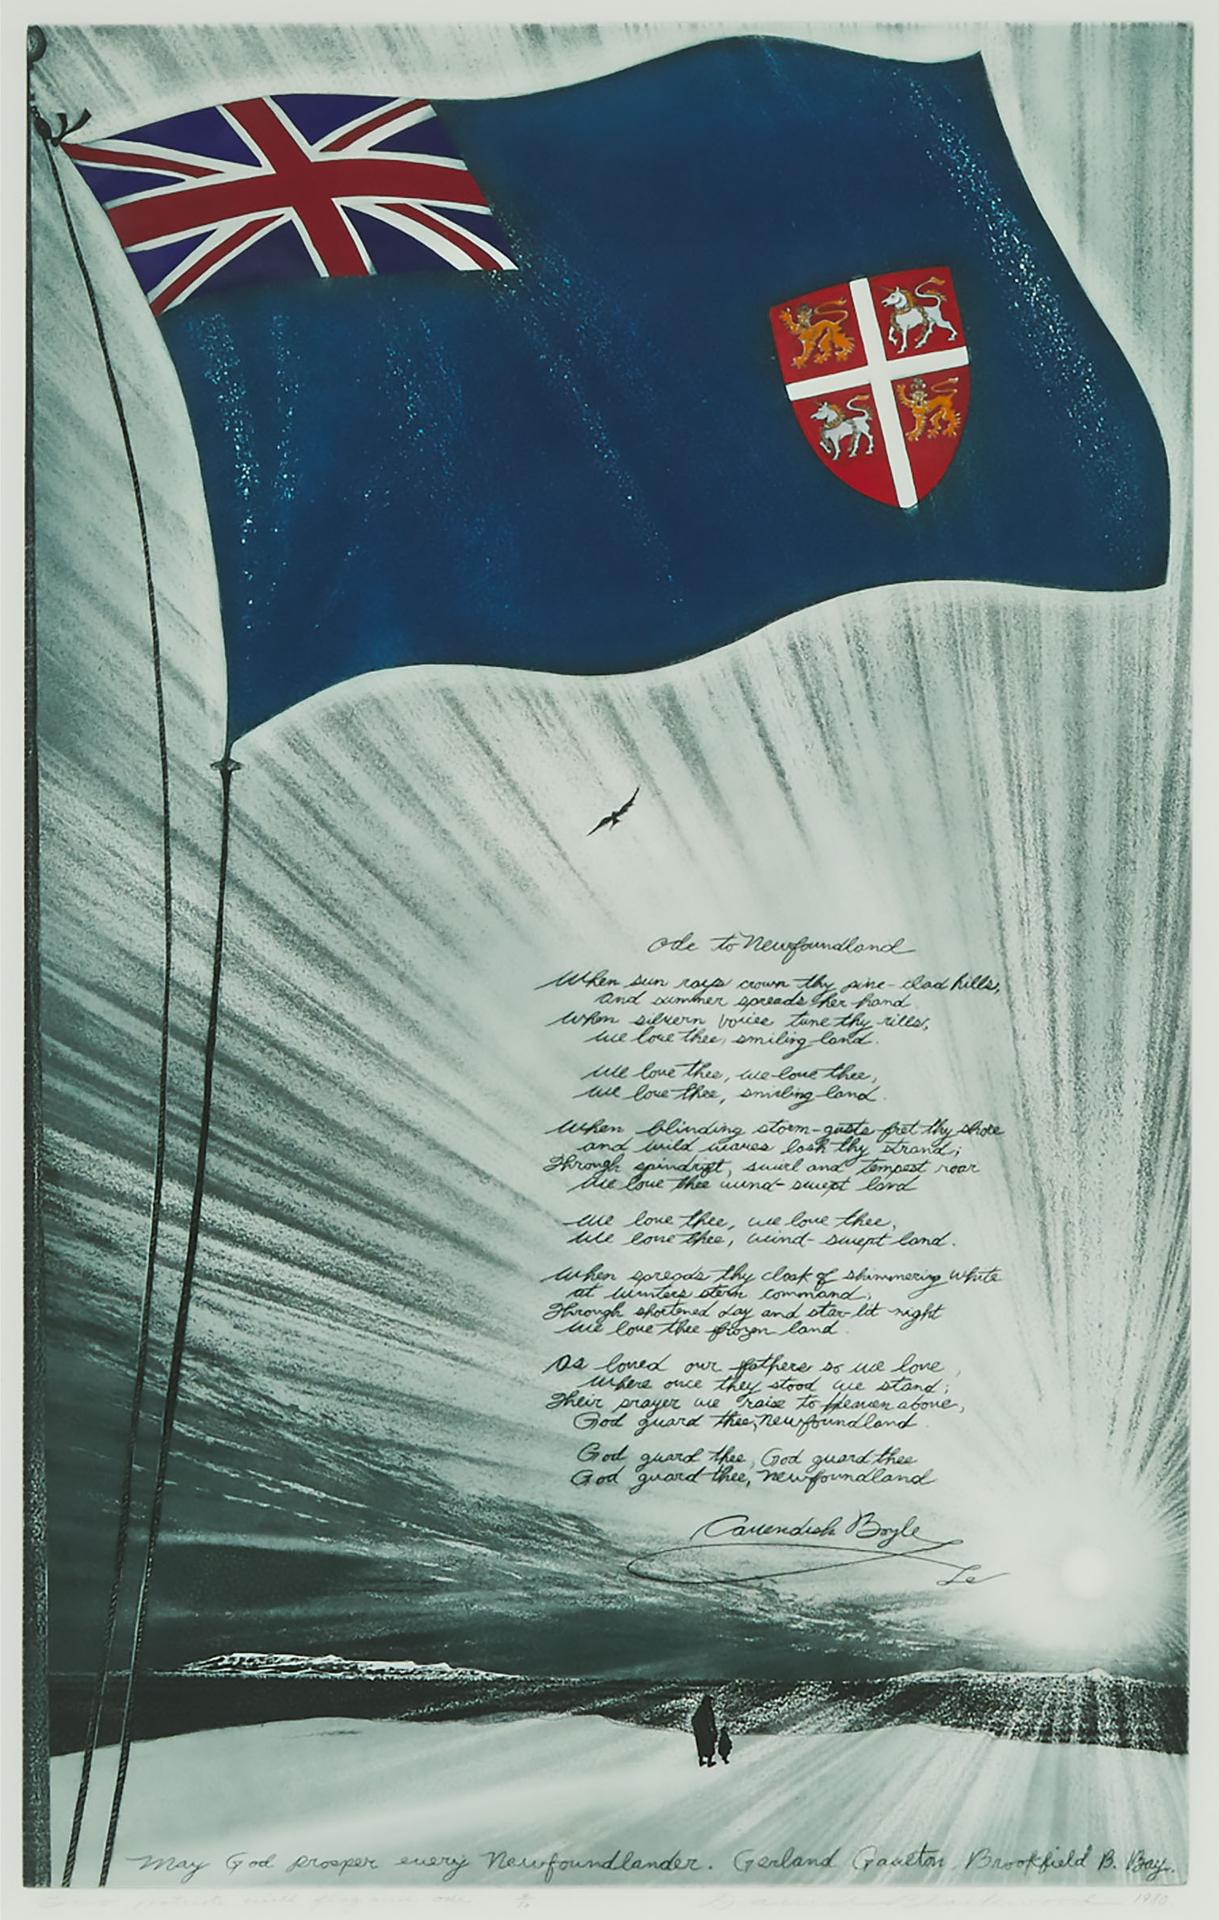 Ode to Newfoundland
When sun rays crown thy pine-clad hills,
and summer spreads her hand
When silvern voices tune thy rills,
we love thee, smiling land.
We love thee, we love thee,
we love thee, smiling land.
When blinding storm-gusts fret thy shore
and wild waves lash thy strand;
Through spindrift, swirl and tempest roar
We love thee wind-swept land
We love thee, we love thee,
We love thee, wind-swept land.
When spreads thy cloak of shimmering white
at winters stern command,
Through shortened day and star-lit night
We love thee frozen land.
As loved our fathers so we love,
Where once they stood we stand;
Their prayer we raise to Heaven above,
God guard thee, Newfoundland.
God guard thee, God guard thee
God guard thee, Newfoundland
Cavendish Boyle
May God prosper every Newfoundlander. Gerland Gaulton, Brookfield B. Bay.
1980